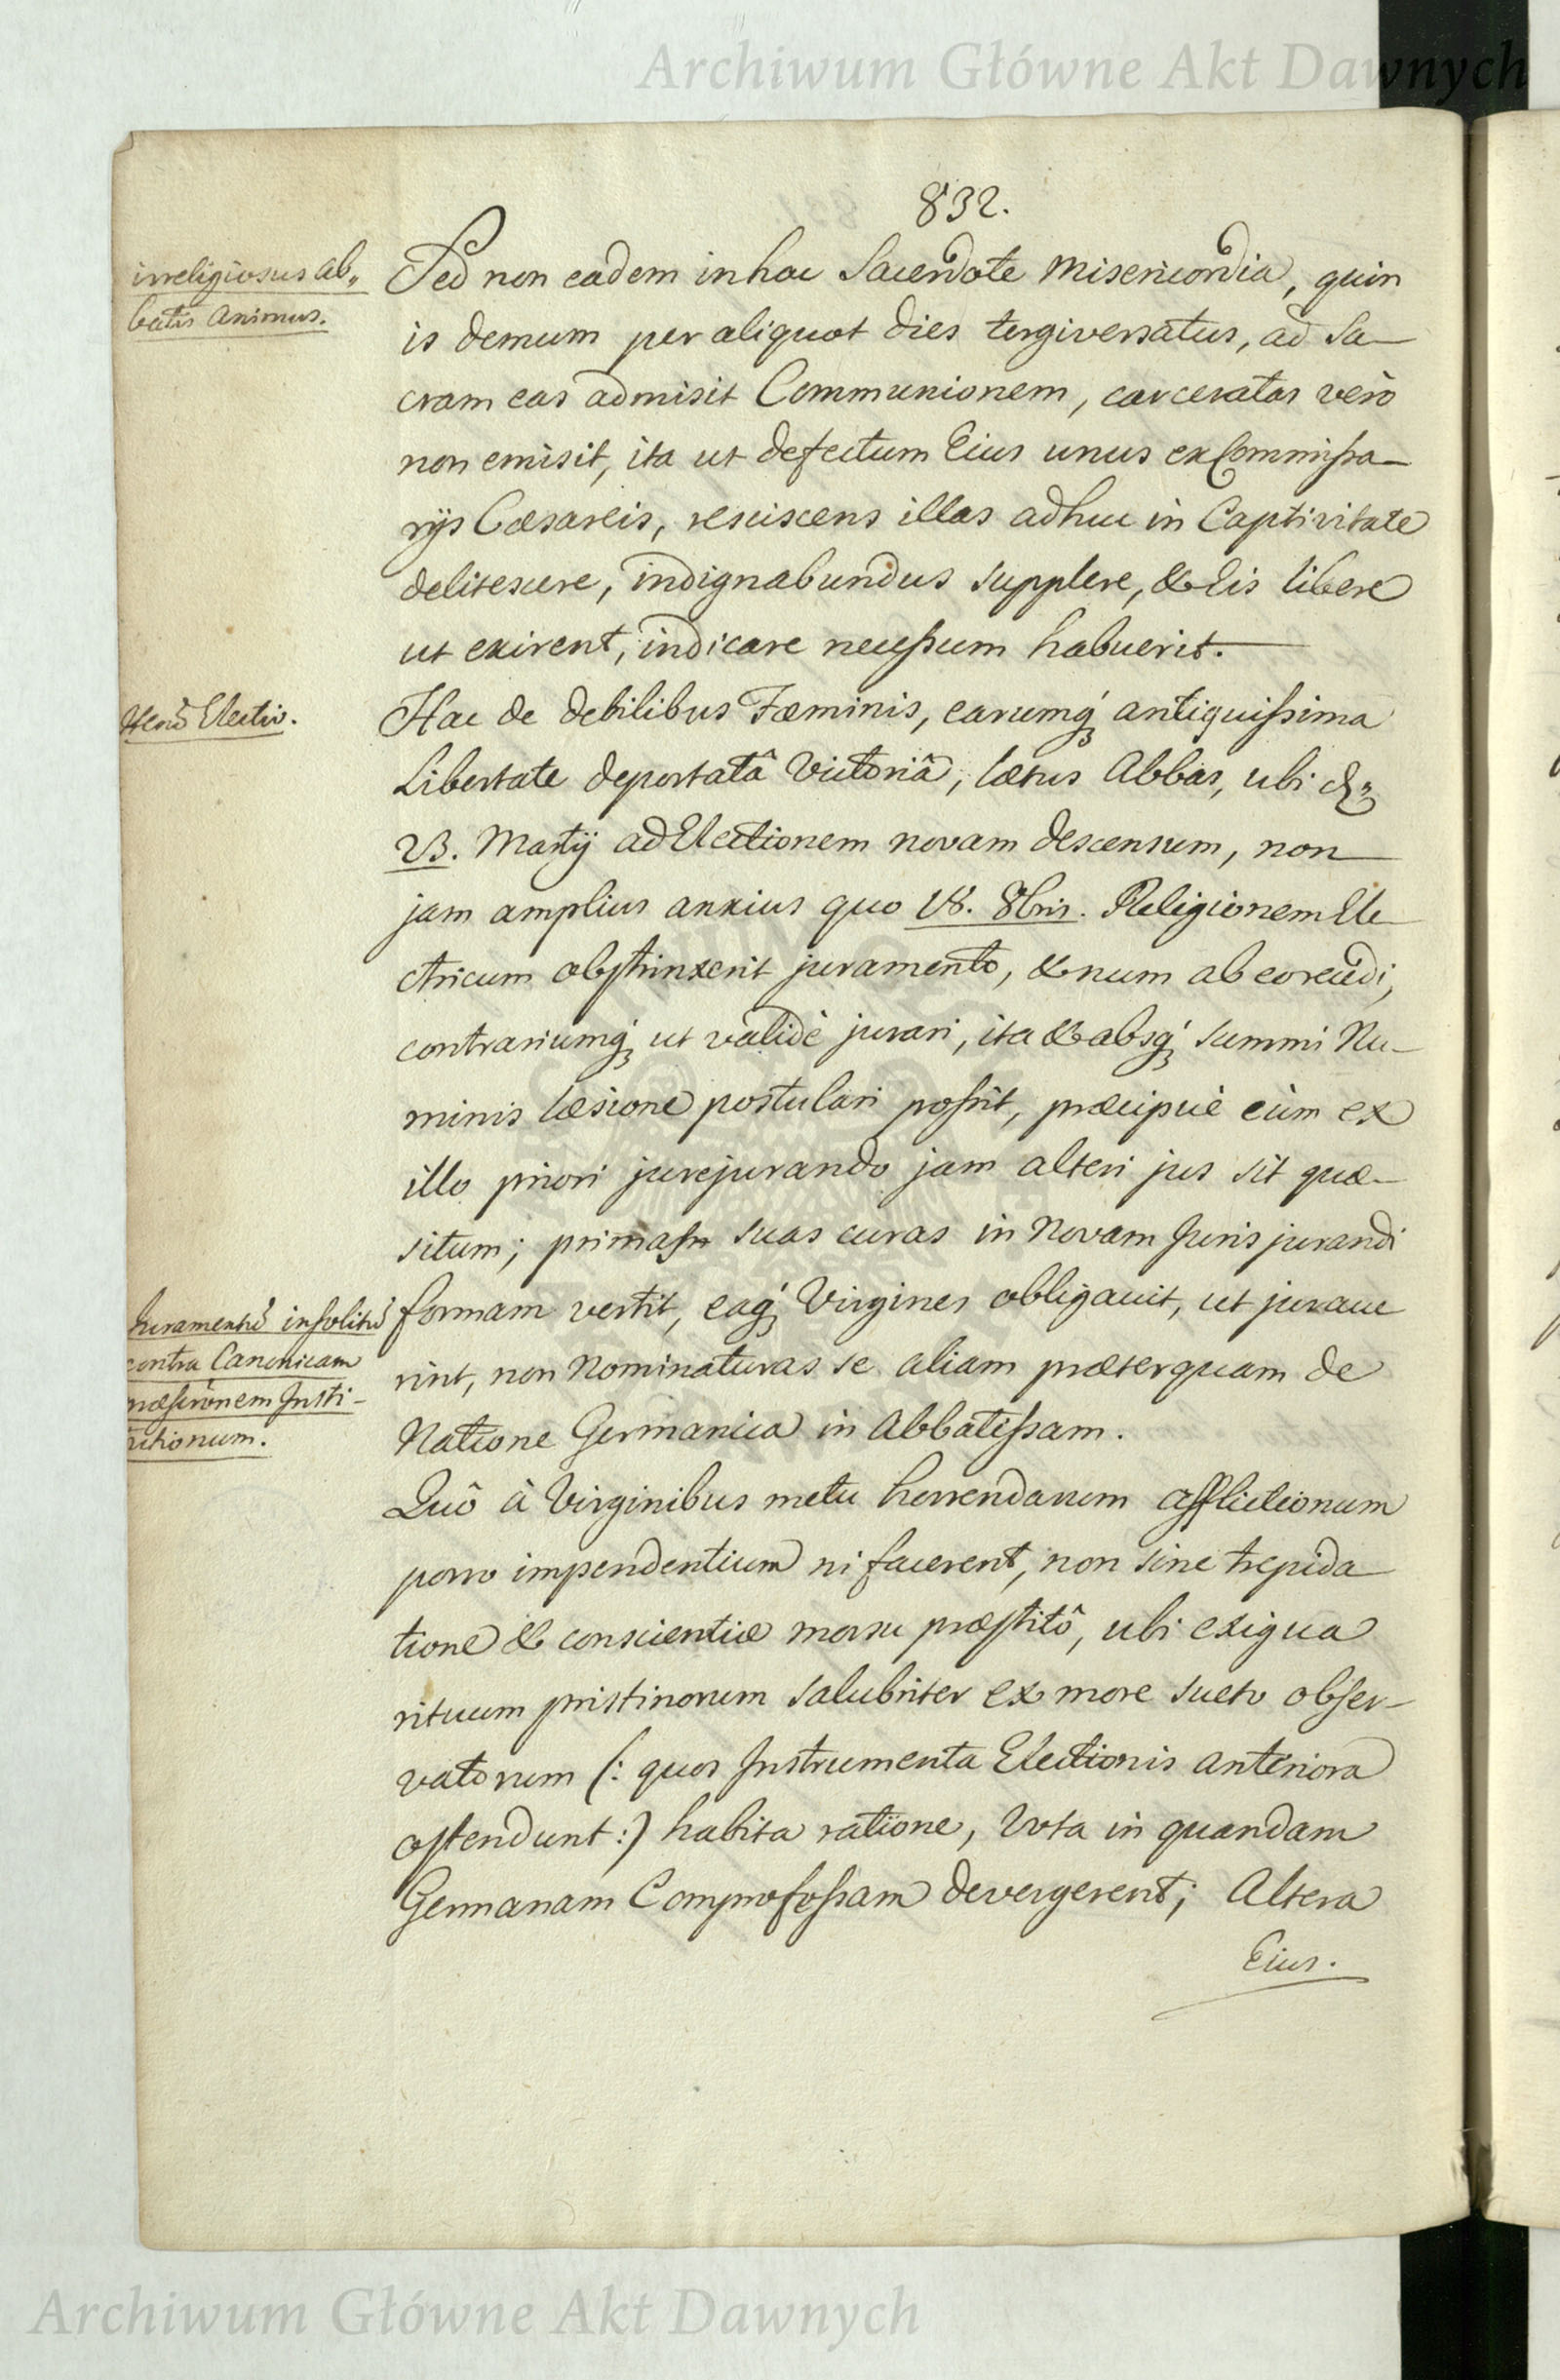 Archiwum Główne Akt Dawnych
832.
irreligiosus Ab„
batis Animus.
Sed non eadem in hoc Sacerdote Misericordia, quin
is demum per aliquot dies tergiversatus, ad Sa–
cram eas admisit Communionem, carceratas verò
non emisit, ita ut defectum Eius unus ex Commissa–
rijs Cæsareis, resciscens illas adhuc in Captivitate
delitescere, indignabundus supplere, & Eis libere
ut exirent, indicare necessum habuerit.
Electio.
Hac de debilibus Fæminis, earumq́ antiquissima
Libertate deportatâ Victoriâ, lætus Abbas, ubi
23. Martij ad Electionem novam descensum, non
jam amplius anxius quo 18. 8bris. Religionem Ele
ctricum obstrinxerit juramento, & num ab eo recedi,
contrariumq́ ut validè jurari, ita & absq́ summi Nu–
minis læsione postulari possit, præcipuè cùm ex
illo priori jurejurando jam alteri jus sit quæ–
situm; primas suas curas in Novam Juris jurandi
Juramentū insolitū
contra Canonicam
præscrionem Insti–
tutionum.
formam vertit, eaq́ Virgines obligavit, ut jurave
rint, non Nominaturas se aliam præterquam de
Natione Germanica in Abbatissam.
Quô à Virginibus metu horrendarum afflictionum
porro impendentium ni facerent, non sine trepida
tione & conscientiæ morsu præstitô, ubi exigua
rituum pristinorum salubriter ex more sueto obser–
vatorum (: quos Instrumenta Electionis anteriora
ostendunt :) habita ratione, Vota in quandam
Germanam Comprofessam devergerent; Altera
Eius.
Archiwum Główne Akt Dawnych